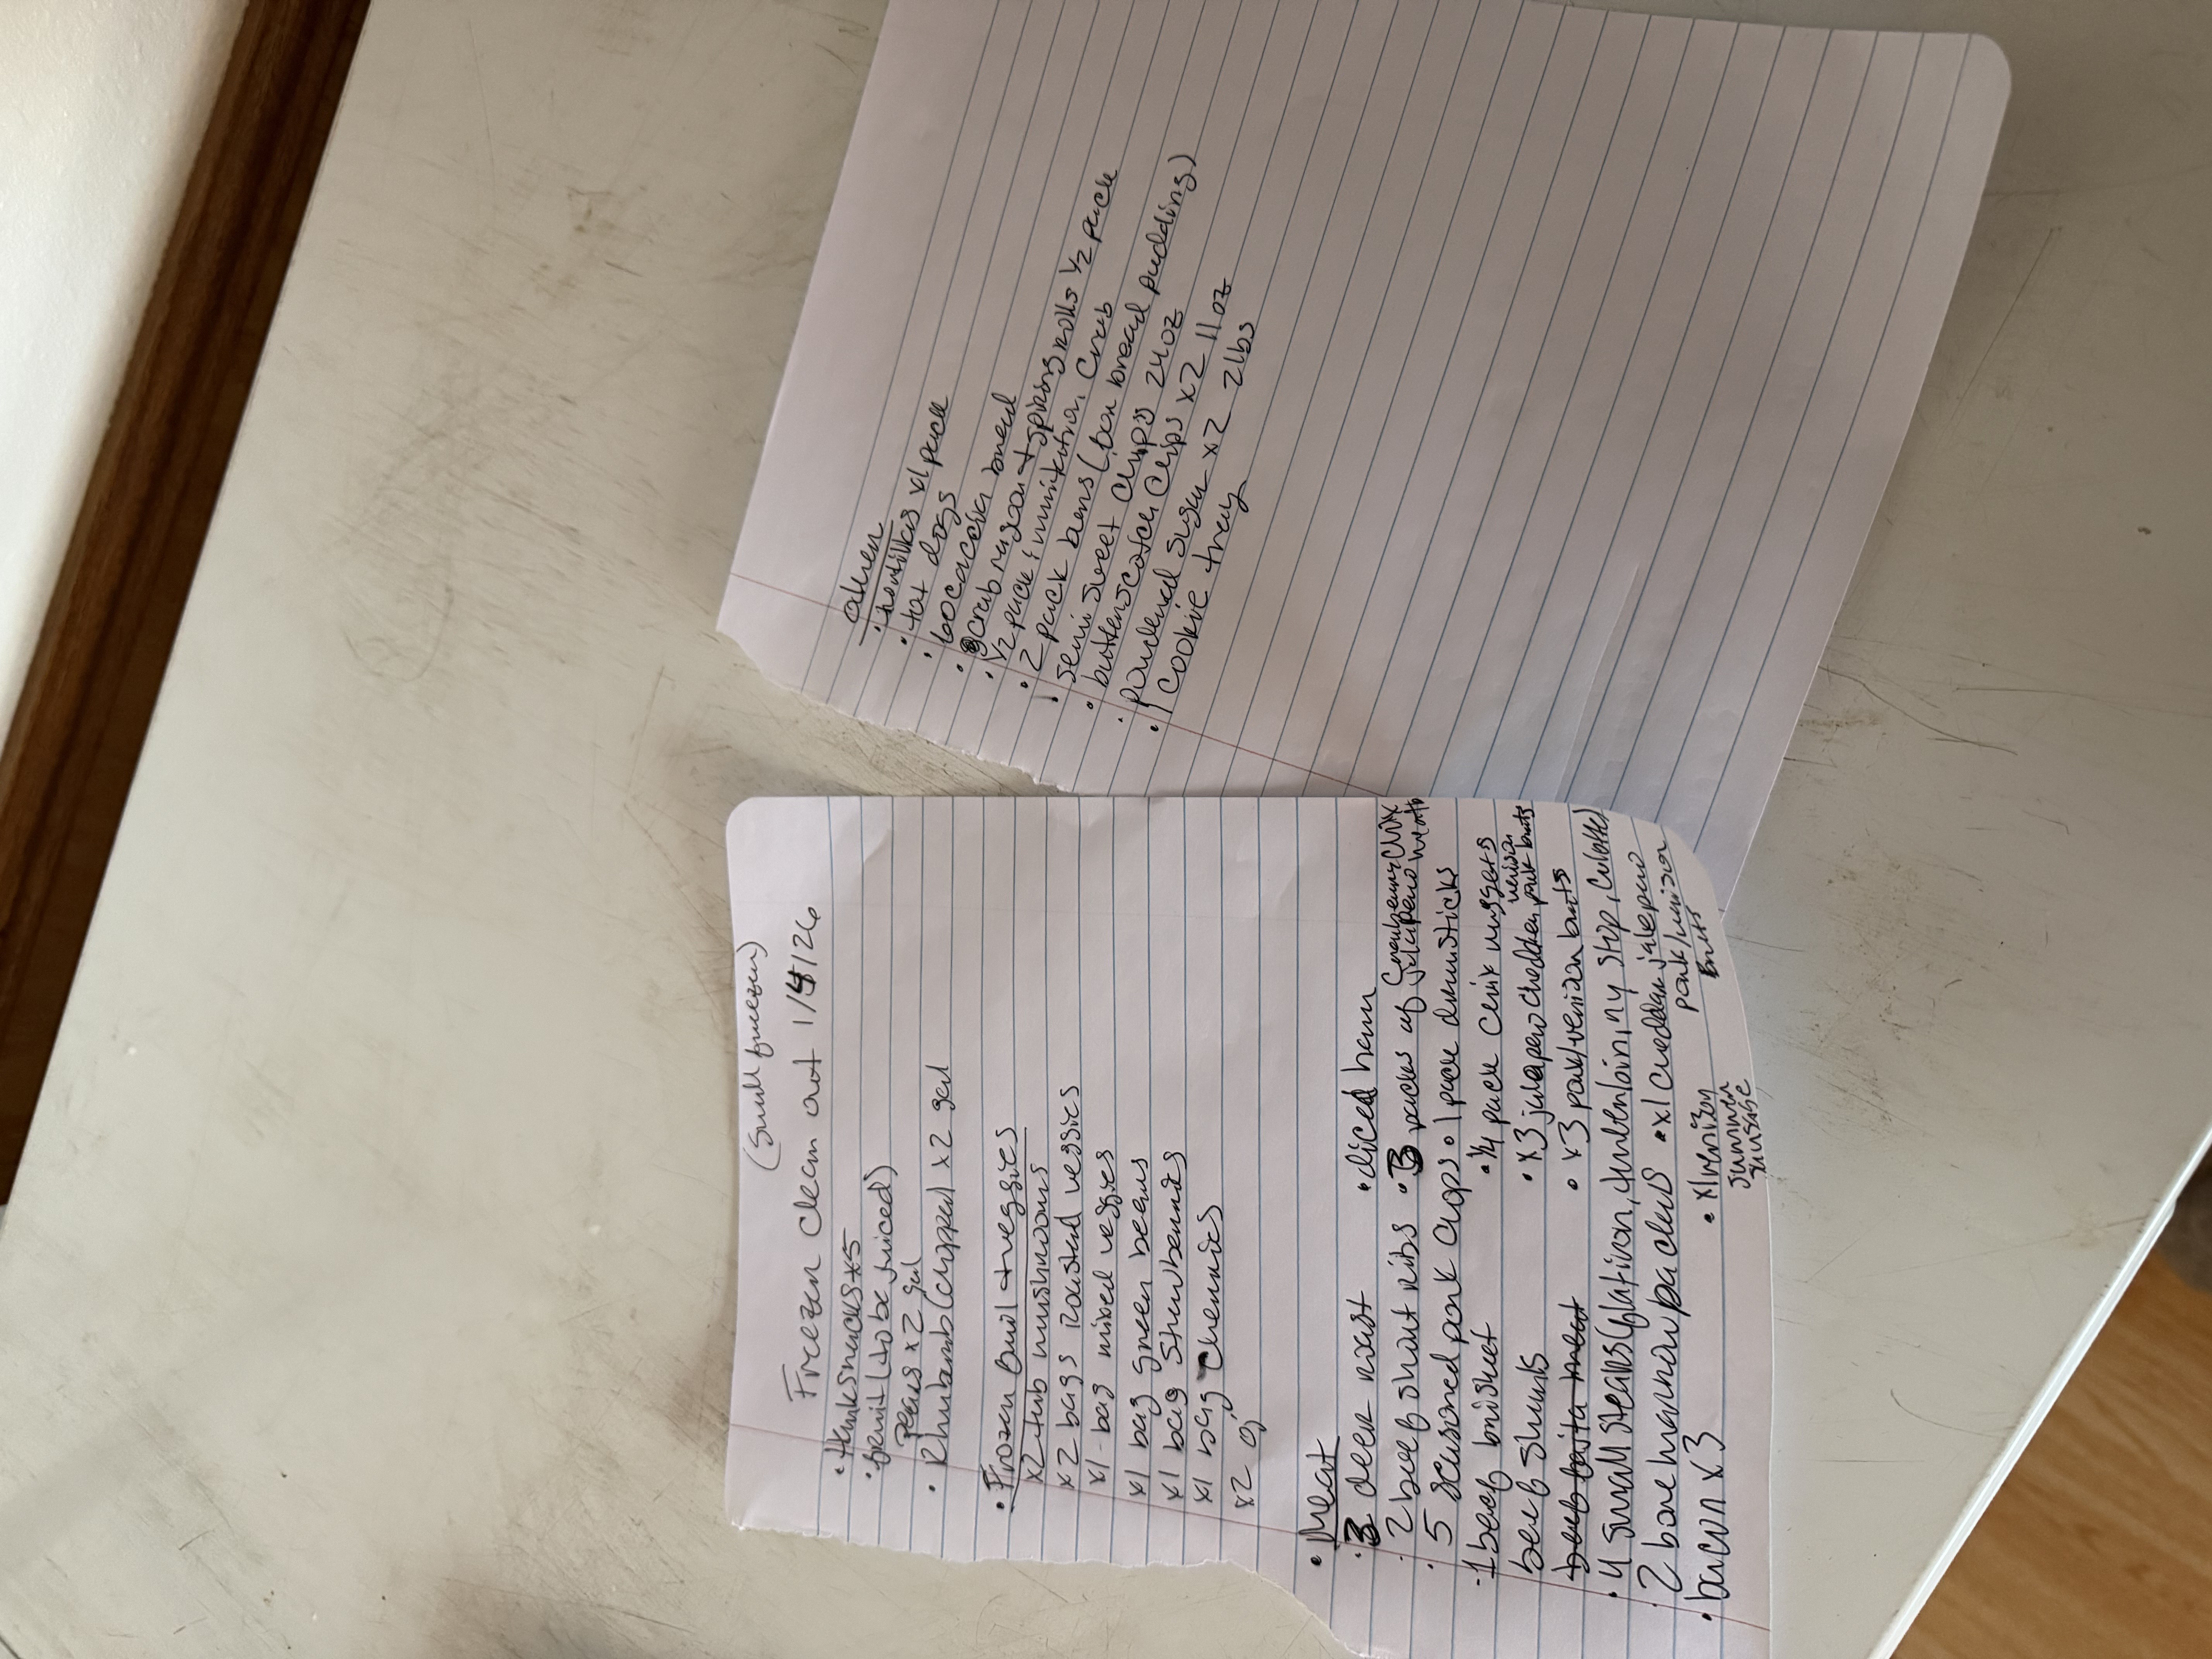 (small freezer)
Freezer clean out 1/4/26
• Hanks snacks x5
• fruit (to be juiced)
Pears x2 gal
• Rhubarb (chopped) x2 gal
• Frozen fruit + veggies
x2 tub mushrooms
x2 bags roasted veggies
x1 bag mixed veggies
x1 bag green beans
x1 bag strawberries
x1 bag cherries
x2
• Meat
• 3 deer roast
• 2 beef short ribs
• 5 seasoned pork chops
- 1 beef brisket
beef shanks
beef fajita meat
• 4 small steaks (flatiron, tenderloin, ny strip, culotte)
• 2 bone marrow packs
• bacon x3
• diced ham
• 3 packs of
jalapeno
• 1 pack drumsticks
• 1/4 pack chik nuggets
• x3 jalapeno cheddar venison pork brats
• x3 pork/venison brats
• x1 cheddar jalepeno
pork/venison
brats
• x1 venison
summer
sausage
other
• tortillas x1 pack
• hot dogs
• focaccia bread
• crab rangoon + spring rolls 1/2 pack
• 1/2 pack immitation crab
• 2 pack buns (for bread pudding)
• semi sweet chips 24oz
• butterscotch chips x2 11oz
• powdered sugar x2 2lbs
• 1 cookie tray